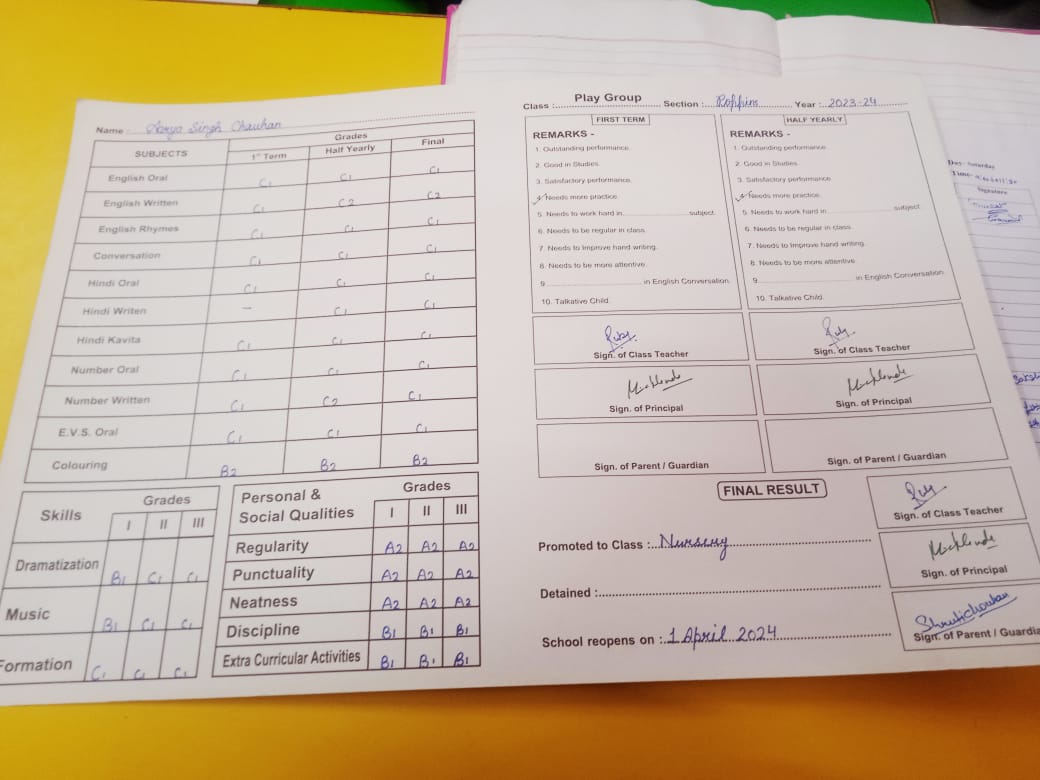 Name : Aarya Singh Chauhan
SUBJECTS Grades
1st Term Half Yearly Final
English Oral C1 C1 C1
English Written C1 C2 C2
English Rhymes C1 C1 C1
Conversation C1 C1 C1
Hindi Oral C1 C1 C1
Hindi Writen – C1 C1
Hindi Kavita C1 C1 C1
Number Oral C1 C1 C1
Number Written C1 C2 C1
E.V.S. Oral C1 C1 C1
Colouring B2 B2 B2
Skills Grades
I II III
Dramatization B1 C1 C1
Music B1 C1 C1
Formation C1 C1 C1
Personal & Social Qualities Grades
I II III
Regularity A2 A2 A2
Punctuality A2 A2 A2
Neatness A2 A2 A2
Discipline B1 B1 B1
Extra Curricular Activities B1 B1 B1
Class : Play Group Section : Poppins Year : 2023-24
FIRST TERM
REMARKS -
1. Outstanding performance.
2. Good in Studies.
3. Satisfactory performance.
4. Needs more practice.
5. Needs to work hard in subject.
6. Needs to be regular in class.
7. Needs to Improve hand writing.
8. Needs to be more attentive.
9. in English Conversation.
10. Talkative Child.
Sign. of Class Teacher
Sign. of Principal
Sign. of Parent / Guardian
HALF YEARLY
REMARKS -
1. Outstanding performance.
2. Good in Studies.
3. Satisfactory performance
4. Needs more practice.
5. Needs to work hard in subject
6. Needs to be regular in class.
7. Needs to Improve hand writing.
8. Needs to be more attentive
9. in English Conversation.
10. Talkative Child
Sign. of Class Teacher
Sign. of Principal
Sign. of Parent / Guardian
FINAL RESULT
Promoted to Class : Nursery
Detained :
School reopens on : 1 April 2024
Sign. of Class Teacher
Sign. of Principal
Shrutichouhan
Sign. of Parent / Guardia
Day- Saturday
Time-
Signature